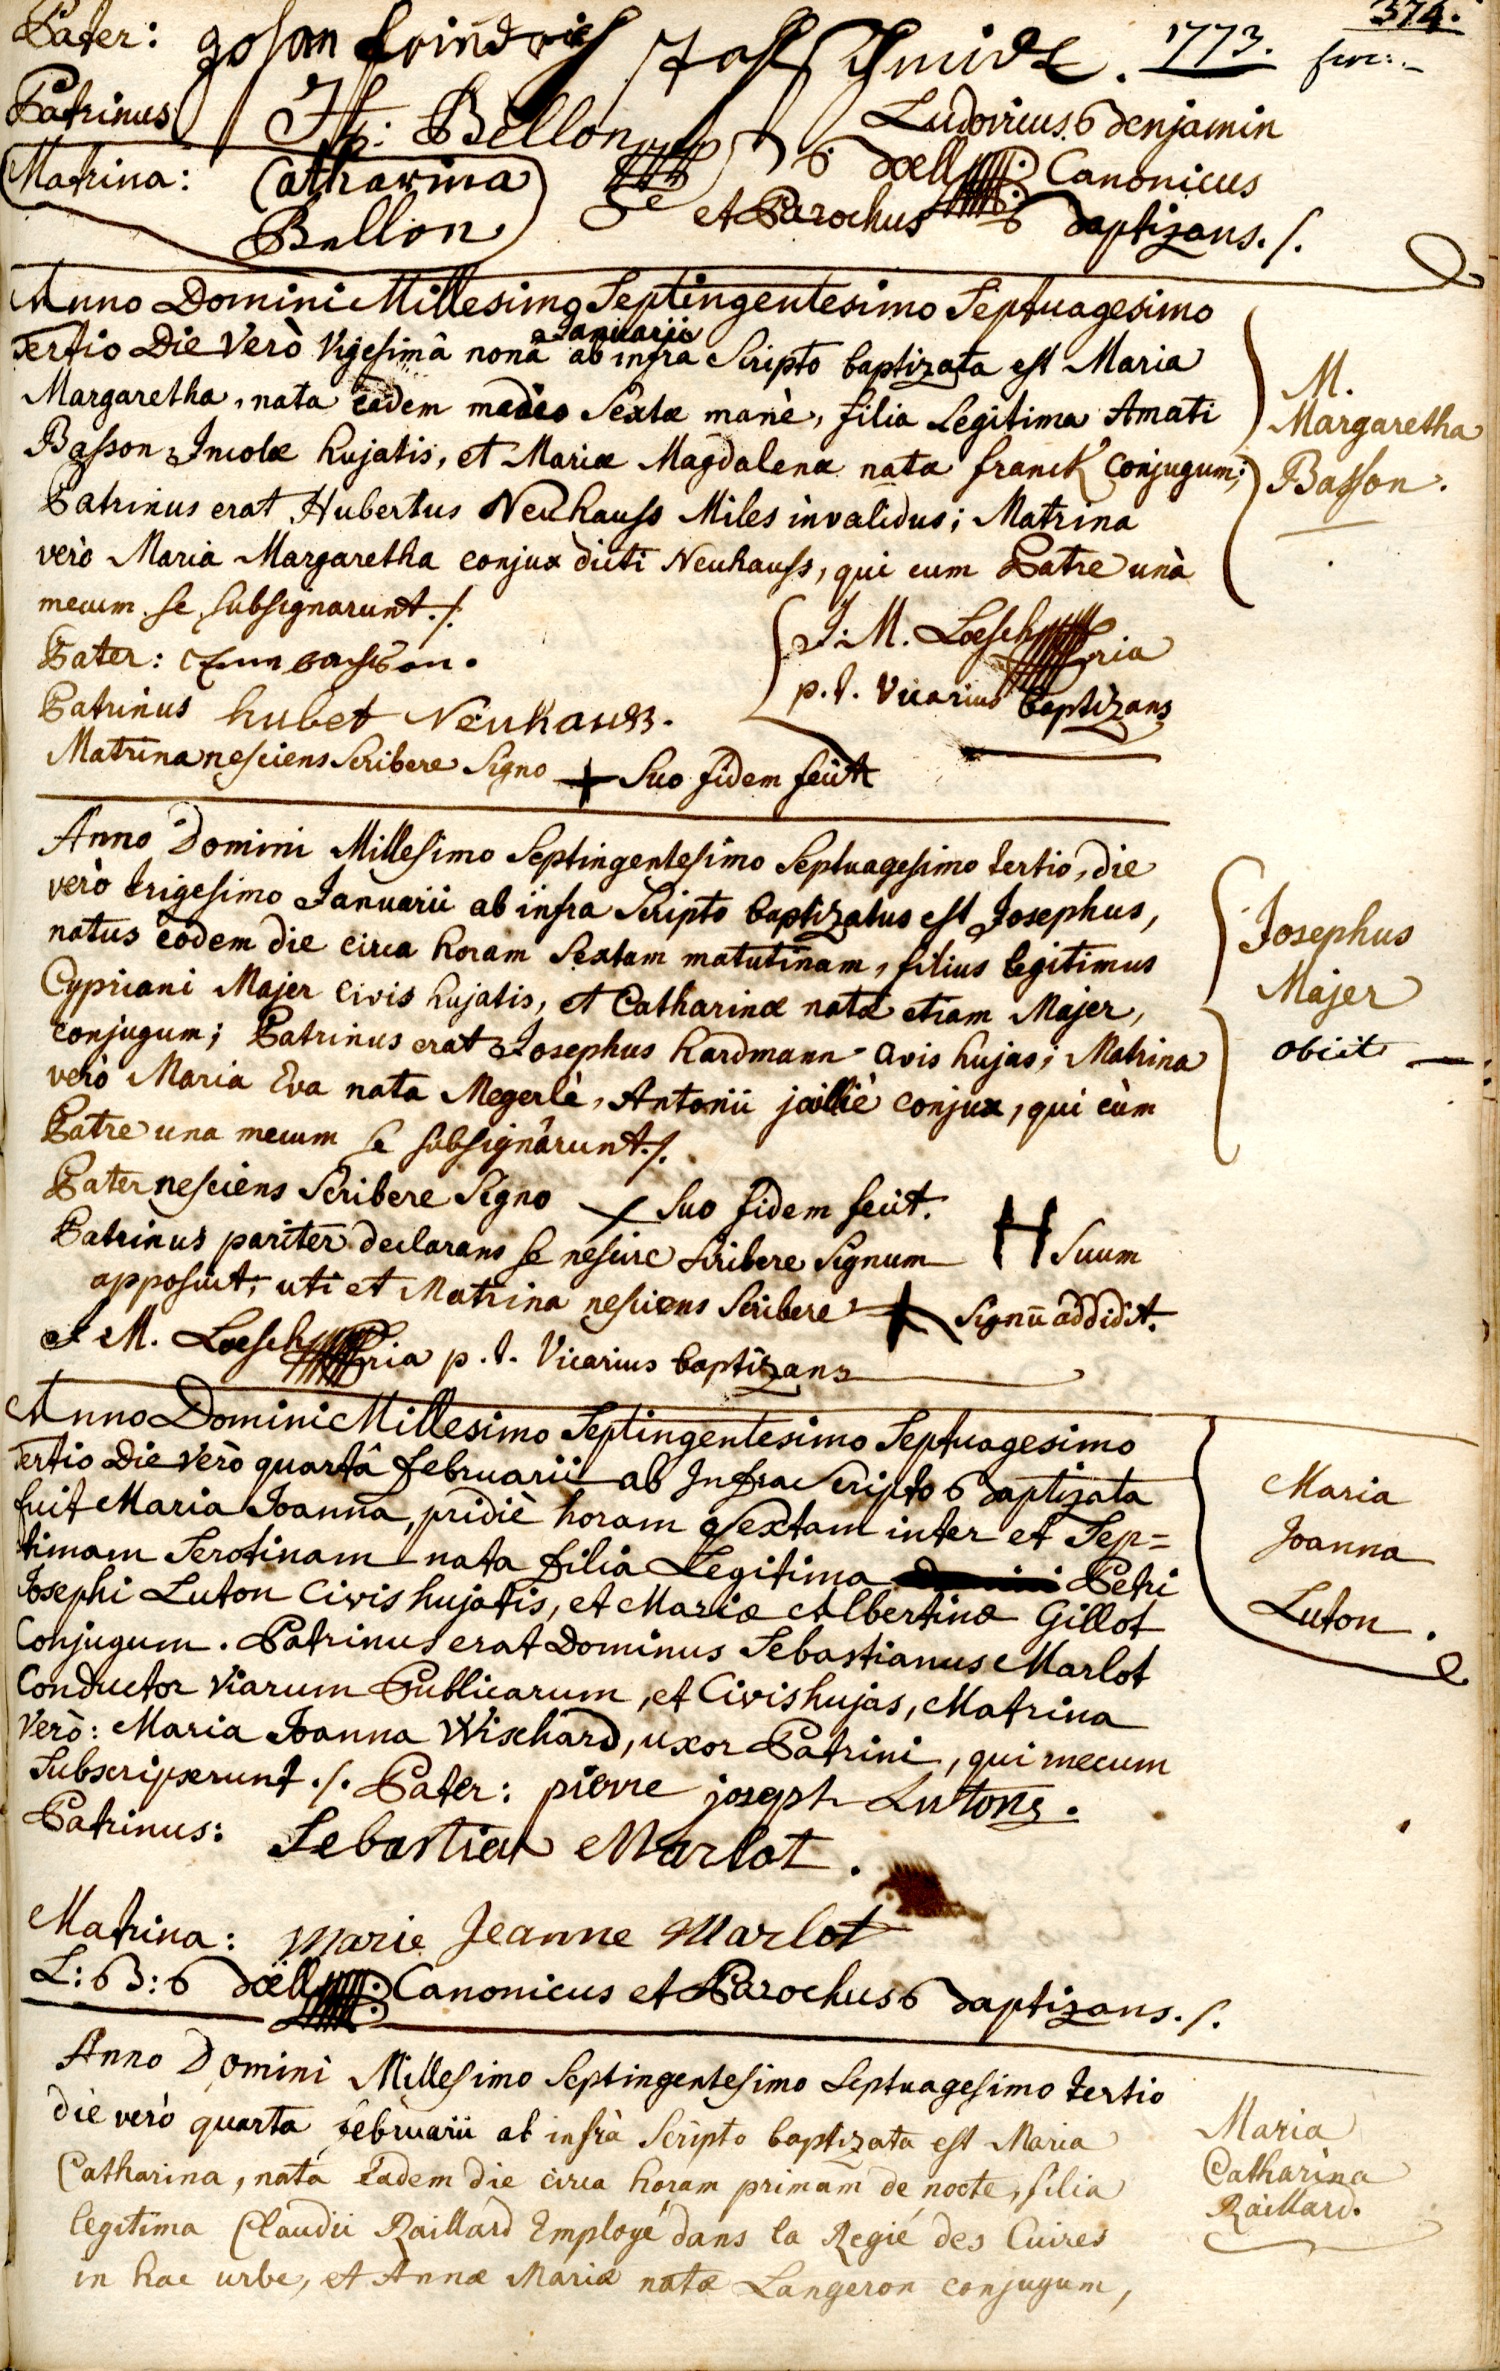 374.
1773.
Pater: Johan Frindrich
Patrinus H: Bellon
Matrina: Catharina
Bellon
Ludovicus Benjamin
Boell Canonicus
et Parochus Baptizans ./.
Anno Domini Millesimo Septingentesimo Septuagesimo
Januarii
Tertio Die Verò Vigesimâ nonâ ab infra Scripto baptizata est Maria
Margaretha, nata eâdem mediâ Sextæ manè, filia Legitima Amati
Basson Incolæ hujatis, et Mariæ Magdalenæ natæ franck conjugum;
Patrinus erat Hubertus Neuhauss Miles invalidus; Matrina
verò Maria Margaretha conjux dicti Neuhauss, qui cum Patre unà
mecum se subsignarunt./.
M.
Margaretha
Basson.
Pater:
Patrinus hubet Neuhauss.
Matrina nesciens Scribere Signo + Suo fidem fecit
J: M. Loesch
p. t. Vicarius baptizans
Anno Domini Millesimo Septingentesimo Septuagesimo tertio, die
verò trigesimo Januarii ab infra Scripto baptizatus est Josephus,
natus eodem die circa horam Sextam matutinam, filius legitimus
Cypriani Majer civis hujatis, et Catharinæ natæ etiam Majer,
conjugum; Patrinus erat Josephus hardmann civis hujas; Matrina
verò Maria Eva nata Megerlè, Antonii jailliè conjux, qui cùm
Patre una mecum se subsignârunt./.
Josephus
Majer
obiit
Pater nesciens Scribere Signo + Suo fidem fecit.
Patrinus pariter declarans se nescire Scribere Signum H Suum
apposuit, uti et Matrina nesciens Scribere + Signū addidit.
J M. Loesch p. t. Vicarius baptizans
Anno Domini Millesimo Septingentesimo Septuagesimo
Tertio Die Verò quartâ februarii ab Infra Scripto Baptizata
fuit Maria Joanna, pridiè horam Sextam inter et Sep=
timam Serotinam nata filia Legitima Petri
Josephi Luton Civis hujatis, et Mariæ Albertinæ Gillot
Conjugum. Patrinus erat Dominus Sebastianus Marlot
Conductor Viarum Publicarum, et Civis hujas, Matrina
Verò: Maria Joanna Wischard, uxor Patrini, qui mecum
Subscripserunt ./. Pater: pierre joseph Lutong.
Maria
Joanna
Luton.
Patrinus: Sebastien Marlot.
Matrina: Marie Jeanne Marlot
L: B: Boell Canonicus et Parochus Baptizans ./.
Anno Domini Millesimo Septingentesimo Septuagesimo tertio
die verò quarta februarii ab infrà Scripto baptizata est Maria
Catharina, nata Eadem die circa horam primam de nocte, filia
legitima Claudii Raillard Employé dans la Regié des Cuires
in hac urbe, et Annæ Mariæ natæ Langeron conjugum,
Maria
Catharina
Raillard.